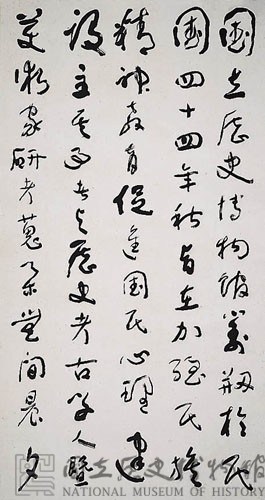 國立歷史博物館剏於民
國四十四年秋旨在加強民族
精神教育促進國民心理建
設主其事者與歷史考古學人暨
美術家研考蒐集無間晨夕
國立歷史博物館
NATIONAL MUSEUM OF HISTORY